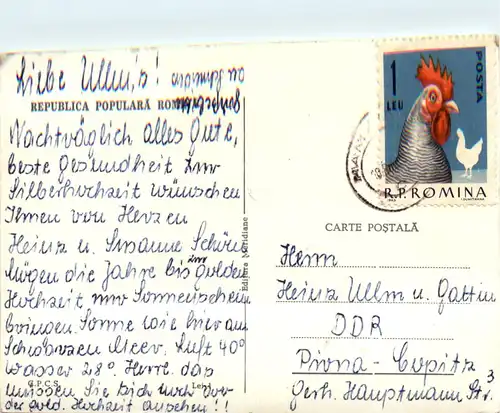 Liebe Ullm's!
REPUBLICA POPULARĂ ROM
Nachträglich alles Gute,
beste Gesundheit zur
Silberhochzeit wünschen
Ihnen von Herzen
Heinz u. Susanne Schön
Mögen die Jahre bis zur golden
Hochzeit nur Sonnenschein
bringen Sonne wie hier am
Schwarzen Meer, Luft 40°
Wasser 28°. Herrl. das
müssen Sie sich noch vor
der gold. Hochzeit ansehen!!
C.P.C.S.
Lei
Editura Meridiane
1
LEU
POSTA
R.P.ROMINA
CARTE POȘTALĂ
Herrn
Heinz Ullm u. Gattin
DDR
Pirna-Copitz
Gerh. Hauptmann Str. 3